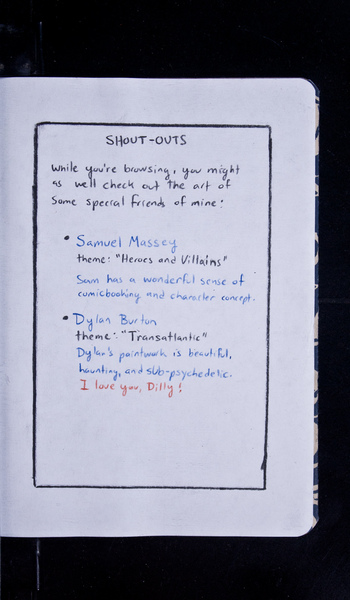 SHOUT-OUTS
While you're browsing, you might
as well check out the art of
some special friends of mine:
• Samuel Massey
theme: "Heroes and Villains"
Sam has a wonderful sense of
comicbooking and character concept.
• Dylan Burton
theme: "Transatlantic"
Dylan's paintwork is beautiful,
haunting, and sub-psychedelic.
I love you, Dilly!